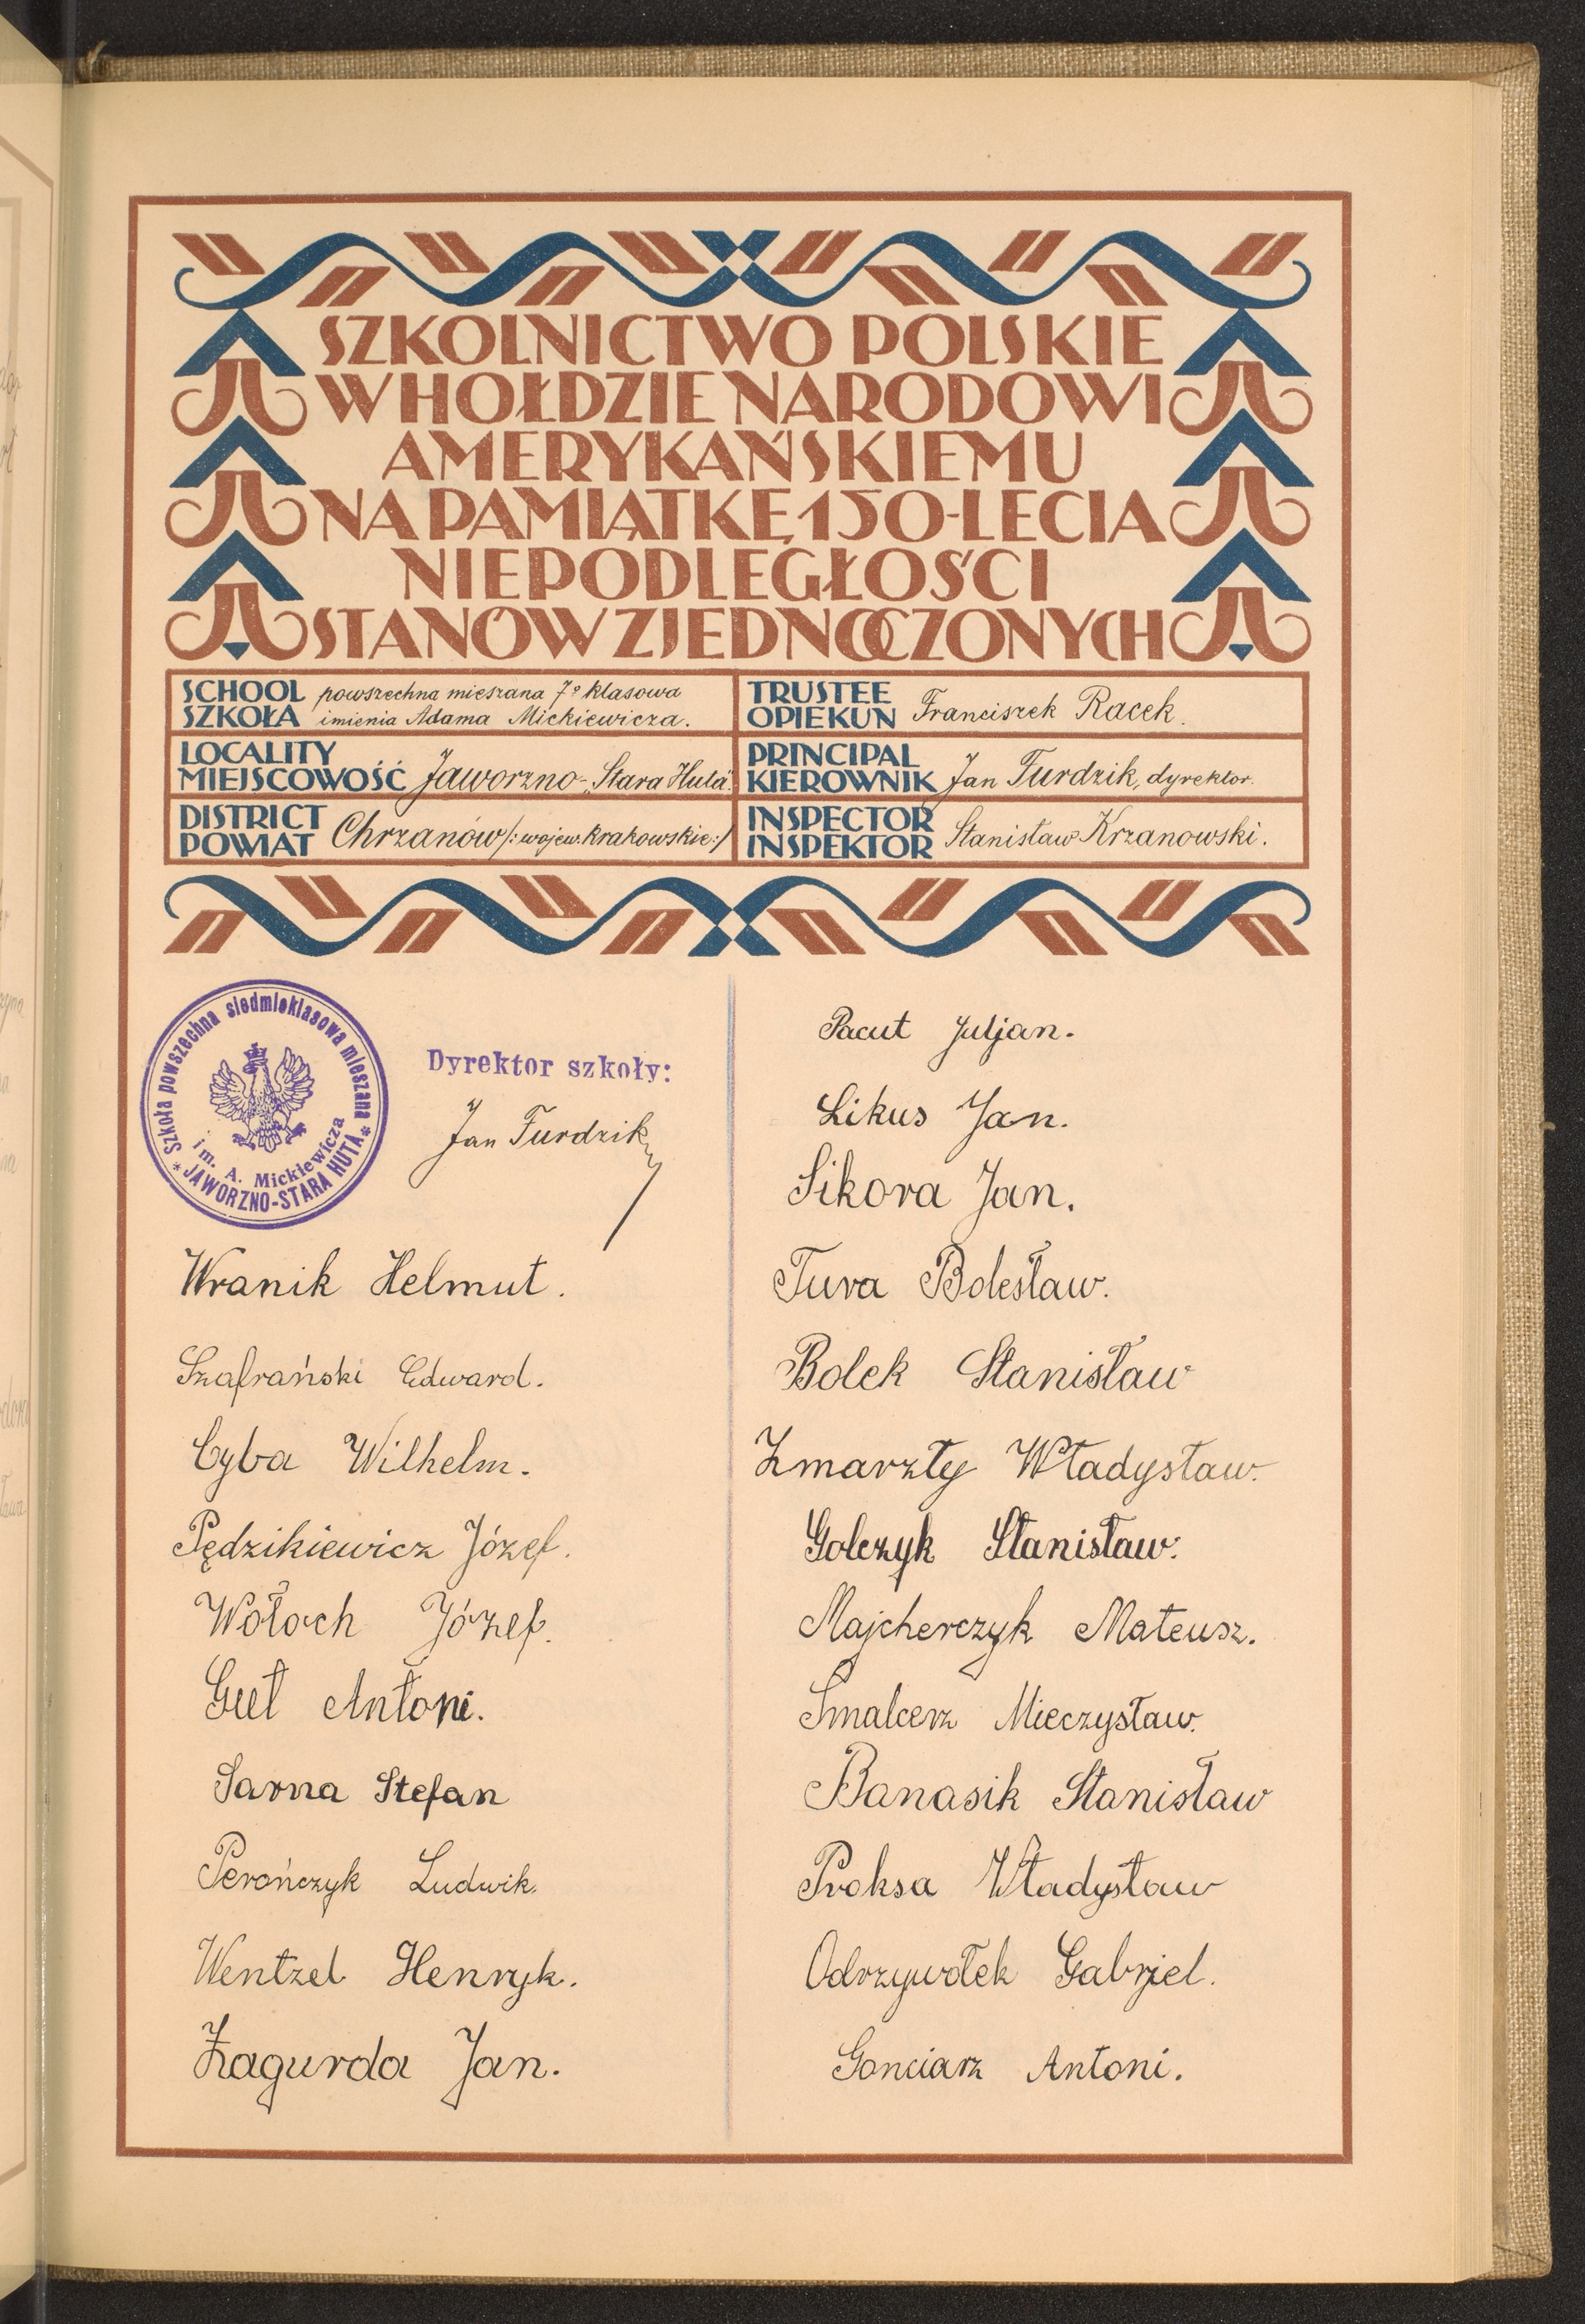 SZKOLNICTWO POLSKIE
W HOŁDZIE NARODOWI
AMERYKAŃSKIEMU
NA PAMIĄTKĘ 150-LECIA
NIEPODLEGŁOŚCI
STANÓW ZJEDNOCZONYCH
SCHOOL
SZKOŁA
powszechna mieszana 7º klasowa
imienia Adama Mickiewicza.
TRUSTEE
OPIEKUN
Franciszek Racek.
LOCALITY
MIEJSCOWOŚĆ
Jaworzno-"Stara Huta".
PRINCIPAL
KIEROWNIK
Jan Turdzik, dyrektor.
DISTRICT
POWIAT
Chrzanów /:wojew. krakowskie:/
INSPECTOR
INSPEKTOR
Stanisław Krzanowski.
* Szkoła powszechna siedmioklasowa mieszana *
im. A. Mickiewicza
JAWORZNO-STARA HUTA
Dyrektor szkoły:
Jan Turdzik
Wranik Helmut.
Szafrański Edward.
Cyba Wilhelm.
Pędzikiewicz Józef.
Wołoch Józef.
Gut Antoni.
Sarna Stefan
Perończyk Ludwik.
Wentzel Henryk.
Zagurda Jan.
Pacut Juljan.
Likus Jan.
Sikora Jan.
Tura Bolesław.
Bolek Stanisław
Zmarzły Władysław.
Golczyk Stanisław.
Majcherczyk Mateusz.
Smalcerz Mieczysław.
Banasik Stanisław
Proksa Władysław
Odrzywołek Gabrjel.
Gonciarz Antoni.